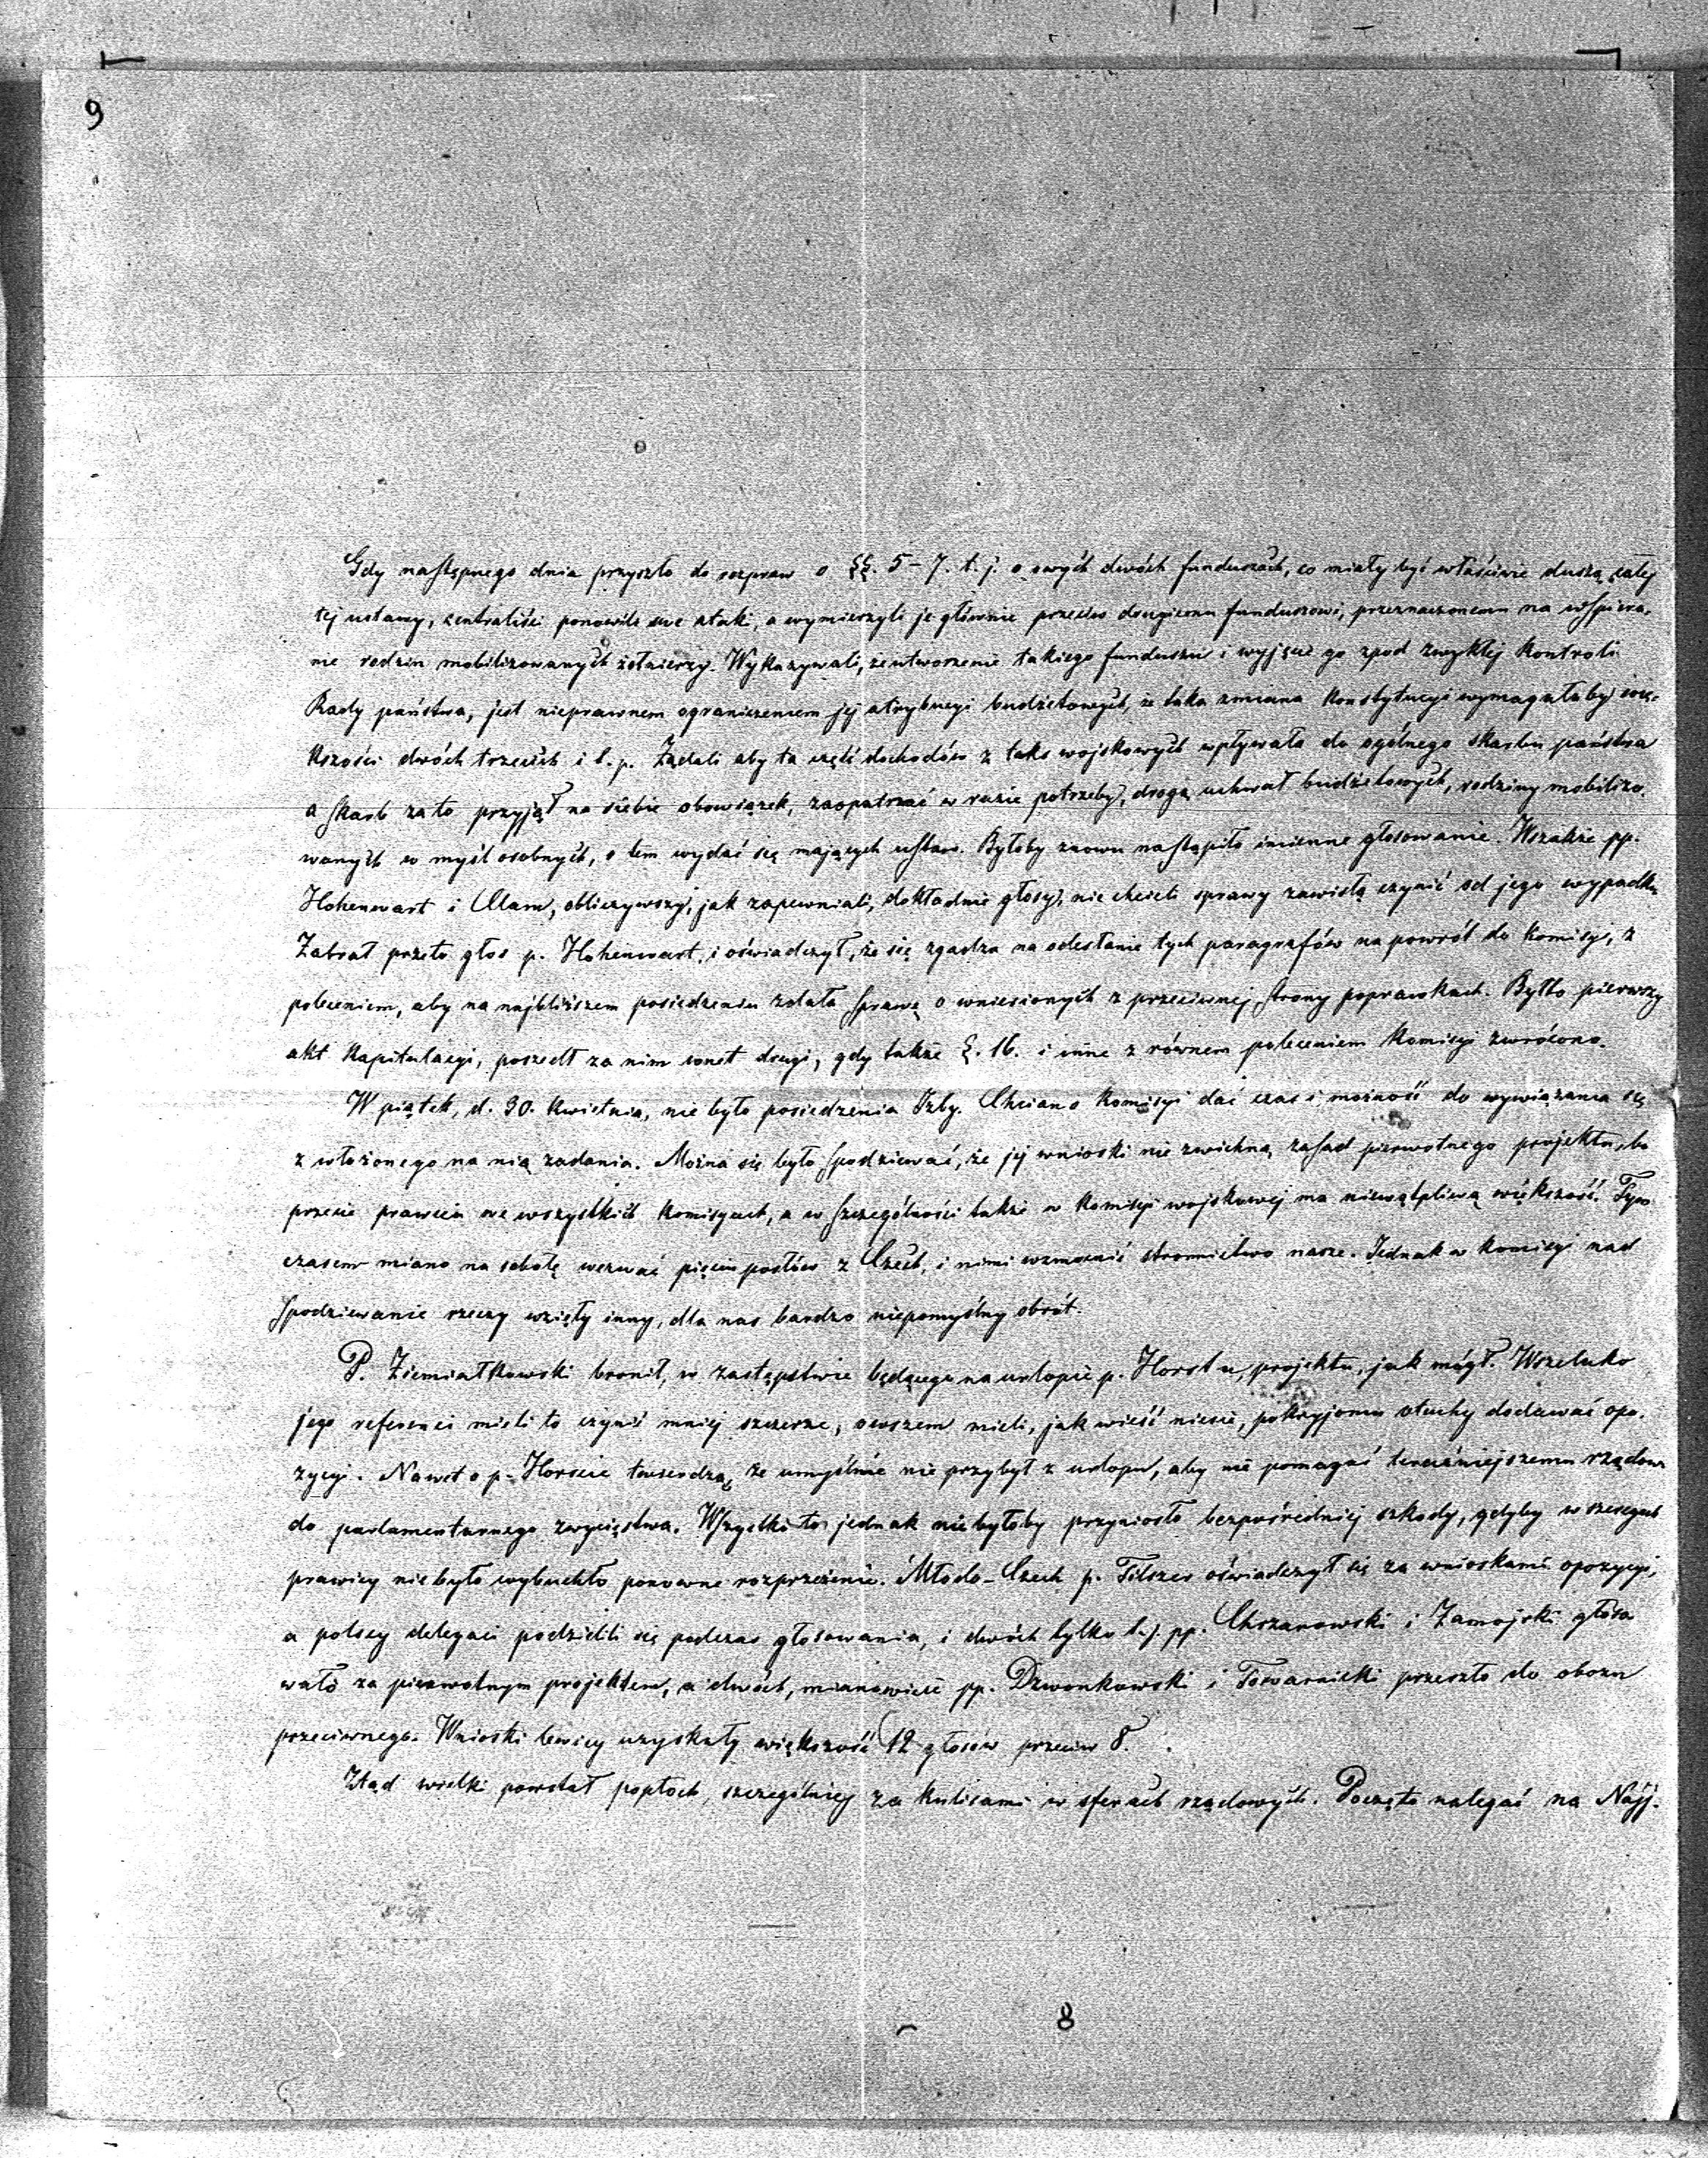 9
Gdy następnego dnia przyszło do rozpraw o §§. 5-7. t. j. o owych dwóch funduszach, co miały być właściwie duszą całej
tej ustawy, centraliści ponowili swe ataki, a wymierzyli je głównie przeciw drugiemu funduszowi, przeznaczonemu na wspiera-
nie rodzin mobilizowanych żołnierzy. Wykazywali, że utworzenie takiego funduszu i wyjęcie go zpod zwykłej kontroli
Rady państwa, jest nieprawnem ograniczeniem jej atrybucyi budżetowych, że taka zmiana konstytucyi wymagałaby wię-
kszości dwóch trzecich i t. p. Żądali aby ta część dochodów z taks wojskowych wpływała do ogólnego skarbu państwa
a skarb za to przyjął na siebie obowiązek, zaopatrzać w razie potrzeby, drogą uchwał budżetowych, rodziny mobilizo-
wanych w myśl osobnych, o tem wydać się mających ustaw. Byłoby znowu nastąpiło imienne głosowanie. Wszakże pp.
Hohenwart i Clam, obliczywszy, jak zapewniali, dokładnie głosy, nie chcieli sprawy zawisłą czynić od jego wypadku
Zabrał przeto głos p. Hohenwart, i oświadczył, że się zgadza na odesłanie tych paragrafów na powrót do komisyi, z
poleceniem, aby na najbliższem posiedzeniu zdała sprawę o wniesionych z przeciwnej strony poprawkach. Był to pierwszy
akt kapitulacyi, poszedł za nim wnet drugi, gdy także §. 16. i inne z równem poleceniem komisyi zwrócono.
W piątek, d. 30. kwietnia, nie było posiedzenia Izby. Chciano komisyi dać czas i możność do wywiązania się
z włożonego na nią zadania. Można się było spodziewać, że jej wnioski nie zwichną zasad pierwotnego projektu, bo
przecie prawica we wszystkich komisyach, a w szczególności także w komisyi wojskowej ma niewątpliwą większość. Tym-
czasem miano na sobotę wezwać pięciu posłów z Czech, i nimi wzmocnić stronnictwo nasze. Jednak w komisyi nad
spodziewanie rzeczy wzięły inny, dla nas bardzo niepomyślny obrót.
P. Ziemiałkowski bronił, w zastępstwie będącego na urlopie p. Horst'u, projektu, jak mógł. Wszelako
jego referenci mieli to czynić mniej szczerze, owszem mieli, jak wieść niesie, pokryjomu otuchy dodawać opo-
zycyi. Nawet o p. Horście twierdzą, że umyślnie nie przybył z urlopu, aby nie pomagać teraźniejszemu rządowi
do parlamentarnego zwycięstwa. Wszystko to jednak nie byłoby przyniosło bezpośredniej szkody, gdyby w szeregach
prawicy nie było wybuchło ponowne rozprzężenie. Młodo-Czech p. Tilszer oświadczył się za wnioskami opozycyi,
a polscy delegaci podzielili się podczas głosowania, i dwóch tylko t. j. pp. Chrzanowski i Zamojski głoso
wało za pierwotnym projektem, a dwóch, mianowicie pp. Dzwonkowski i Towarnicki przeszło do obozu
przeciwnego. Wnioski lewicy uzyskały większość 12 głosów przeciw 8.
Ztąd wielki powstał popłoch, szczególniej za kulisami w sferach rządowych. Poczęto nalegać na Najj.
8